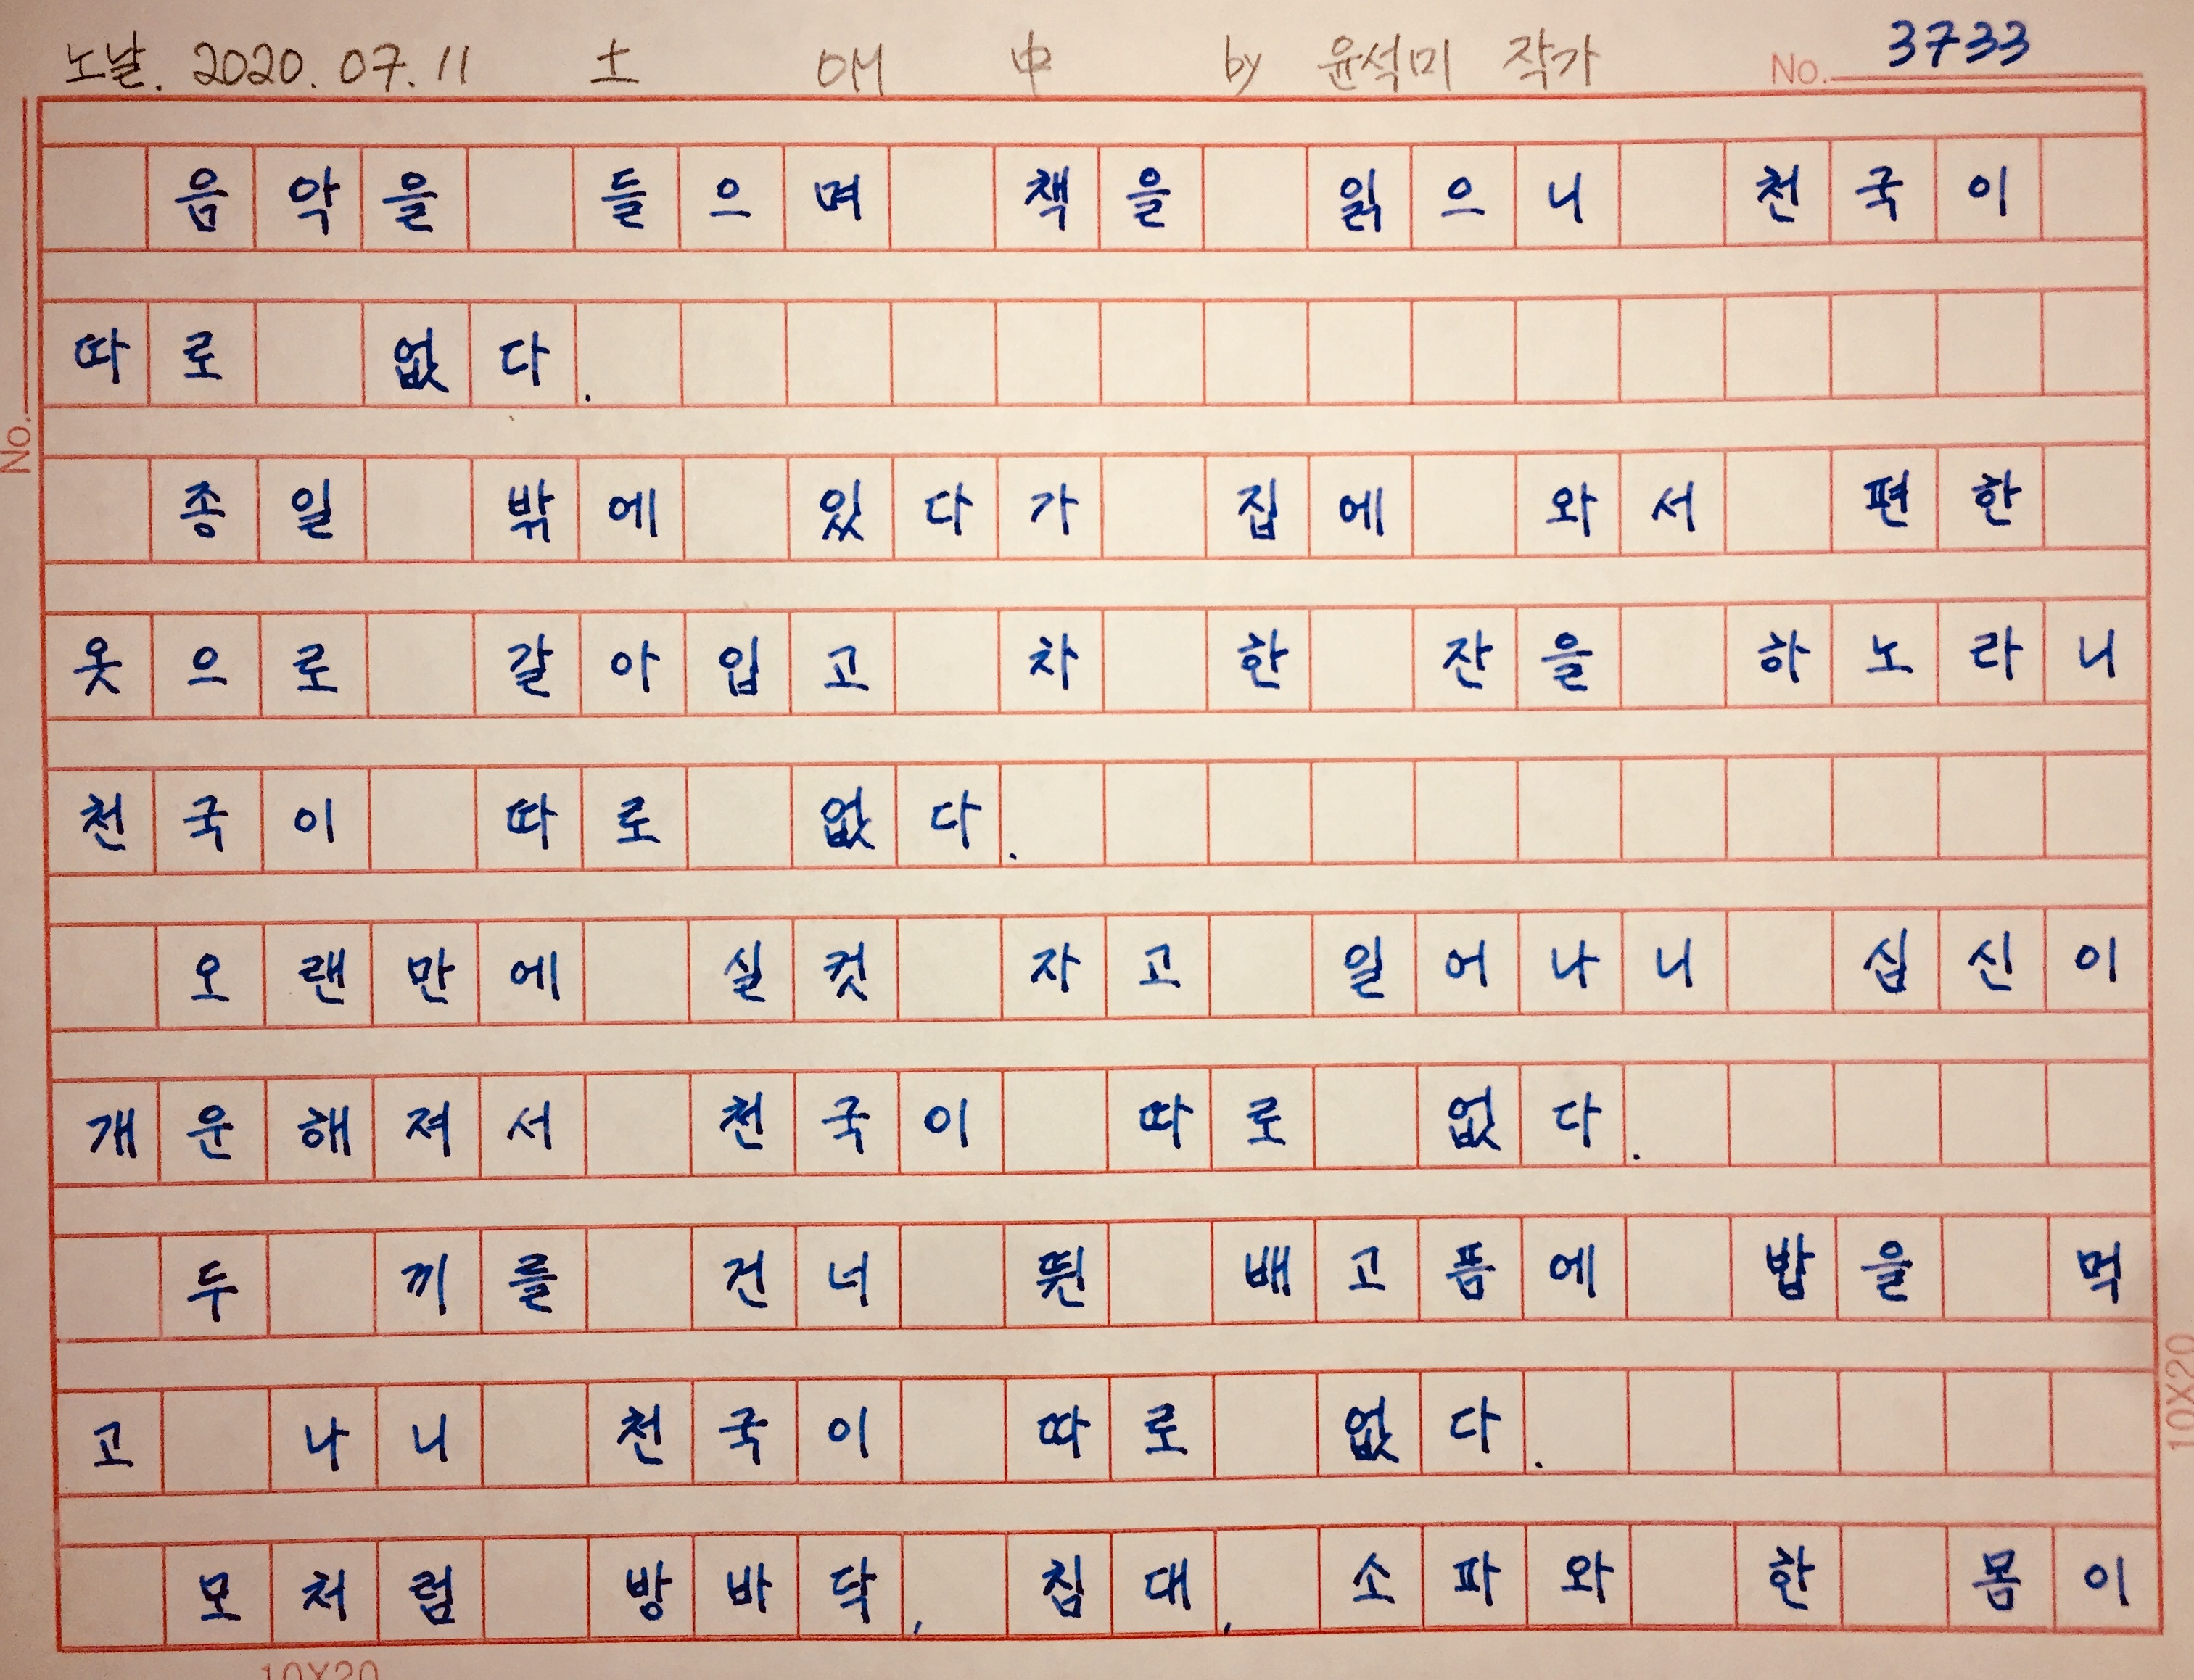 노날. 2020. 07. 11 土 OM 中 by 윤석미 작가 No. 3733
음악을 들으며 책을 읽으니 천국이
따로 없다.
종일 밖에 있다가 집에 와서 편한
옷으로 갈아입고 차 한 잔을 하노라니
천국이 따로 없다.
오랜만에 실컷 자고 일어나니 심신이
개운해져서 천국이 따로 없다.
두 끼를 건너 뛴 배고픔에 밥을 먹
고 나니 천국이 따로 없다.
모처럼 방바닥, 침대, 소파와 한 몸이
No.
10X20
10X20